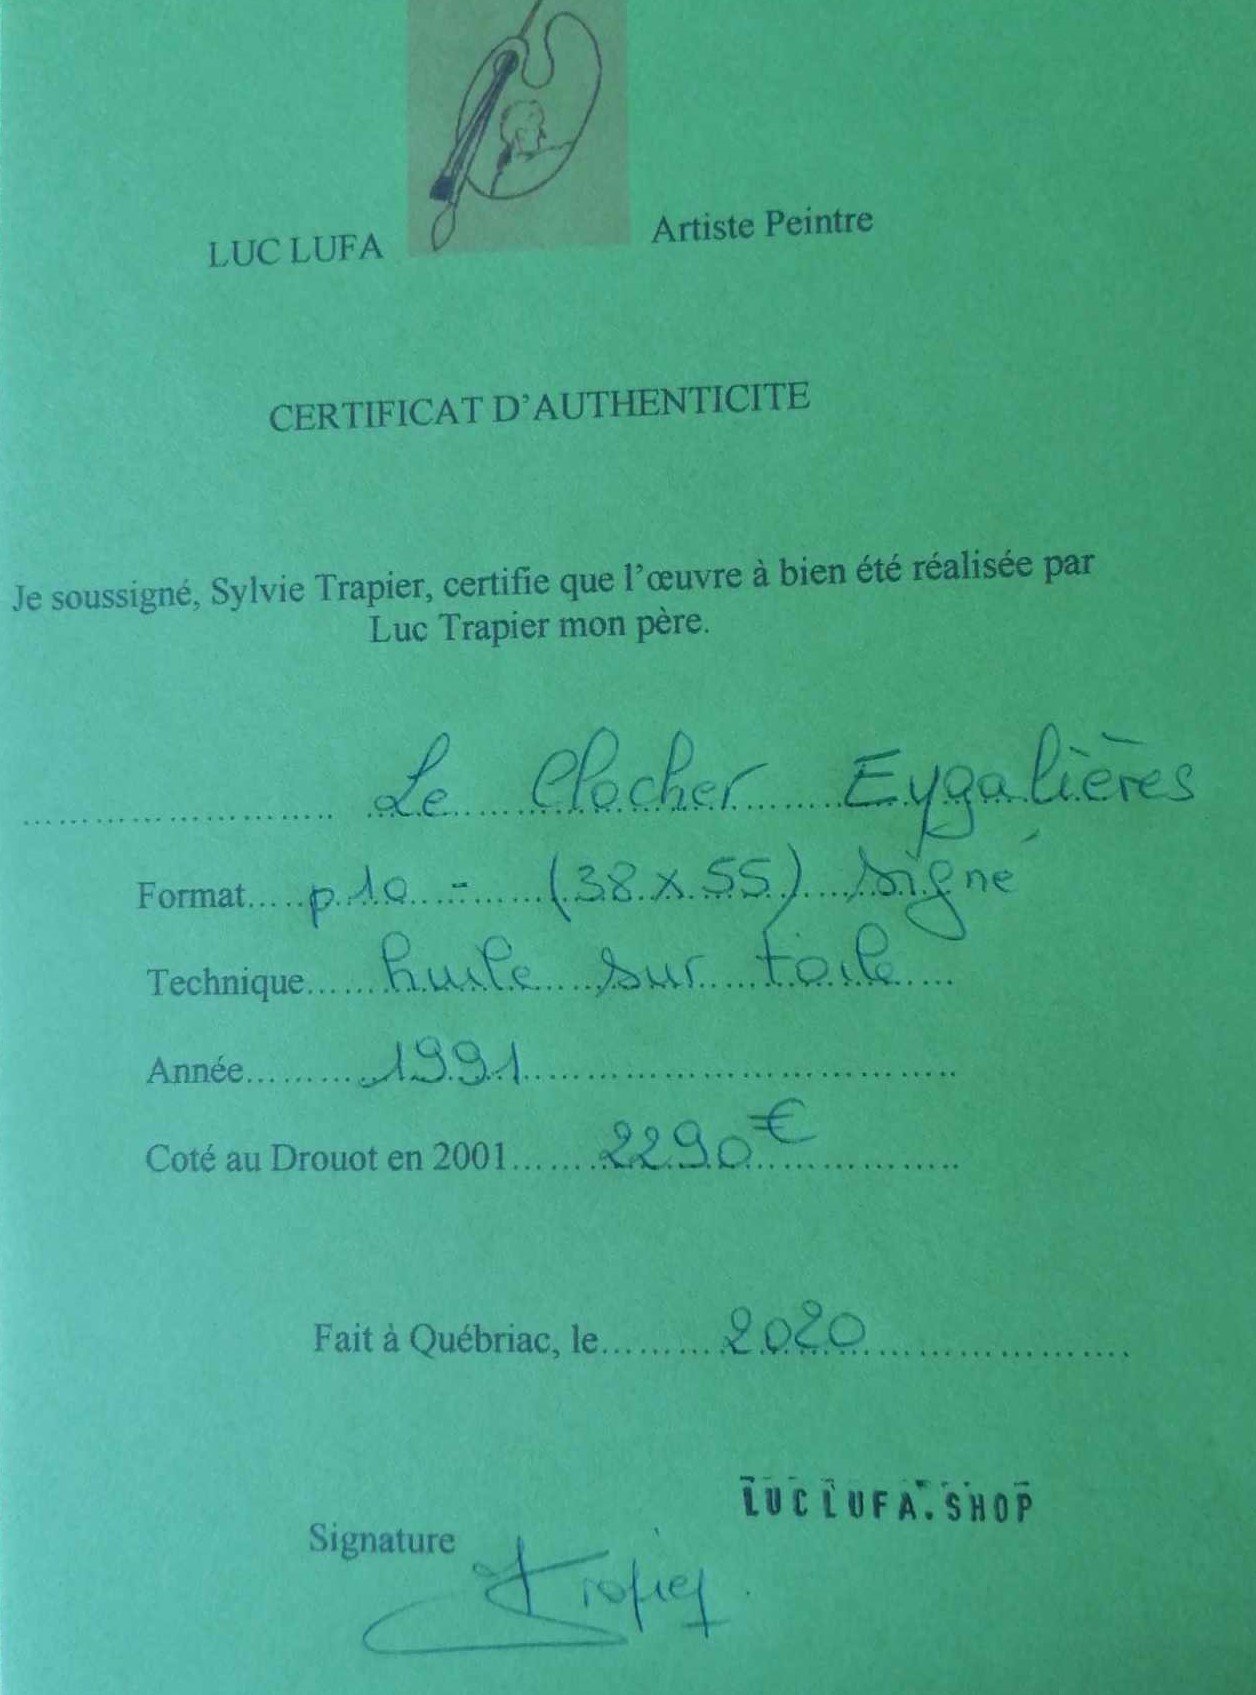 LUC LUFA Artiste Peintre
CERTIFICAT D'AUTHENTICITE
Je soussigné, Sylvie Trapier, certifie que l'œuvre à bien été réalisée par
Luc Trapier mon père.
Le Clocher Eygalières
Format.....p10 - (38 x 55) signé
Technique......huile sur toile....
Année.........1991
Coté au Drouot en 2001.......2290€
Fait à Québriac, le.........2020
LUCLUFA.SHOP
Signature
Trapier